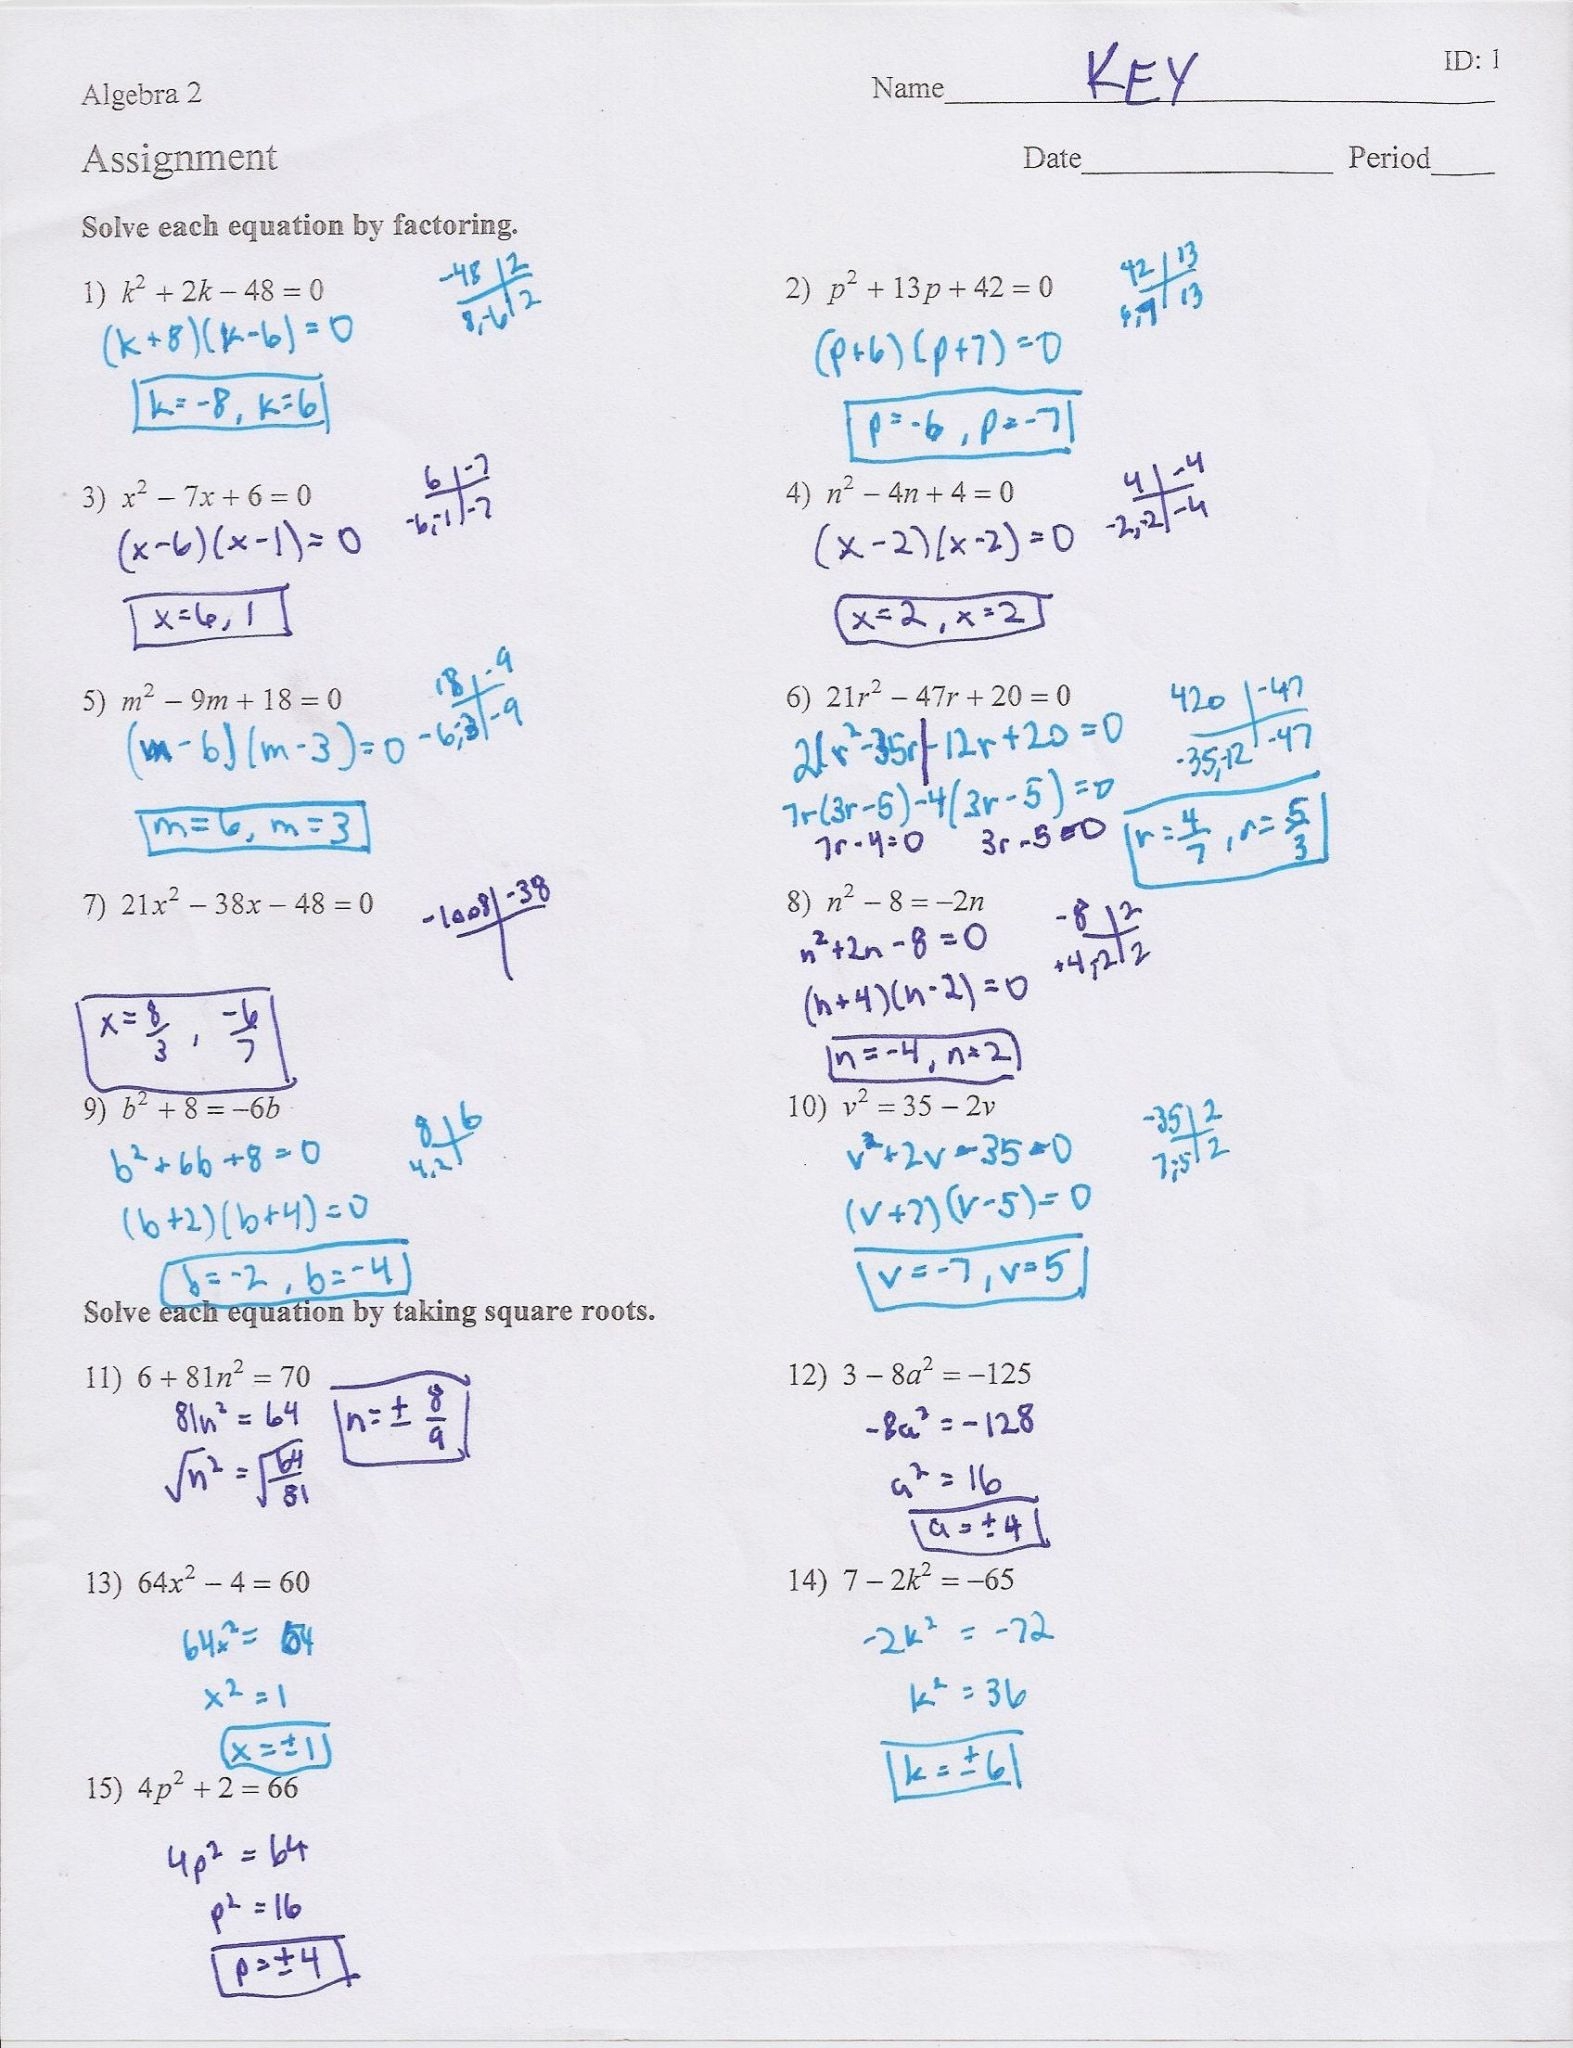 Algebra 2
Name KEY
ID: 1
Assignment
Date
Period
Solve each equation by factoring.
1) k² + 2k – 48 = 0
-48 | 2
8, -6 | 2
(k+8)(k-6) = 0
k = -8, k = 6
2) p² + 13p + 42 = 0
42 | 13
6,7 | 13
(p+6)(p+7) = 0
p = -6, p = -7
3) x² – 7x + 6 = 0
6 | -7
-6,-1 | -7
(x-6)(x-1) = 0
x = 6, 1
4) n² – 4n + 4 = 0
4 | -4
-2,-2 | -4
(x-2)(x-2) = 0
x = 2, x = 2
5) m² – 9m + 18 = 0
18 | -9
-6,-3 | -9
(m-6)(m-3) = 0
m = 6, m = 3
6) 21r² – 47r + 20 = 0
420 | -47
-35,-12 | -47
21r² - 35r | - 12r + 20 = 0
7r(3r-5) - 4(3r-5) = 0
7r - 4 = 0 3r - 5 = 0
r = 4/7, r = 5/3
7) 21x² – 38x – 48 = 0
-1008 | -38
x = 8/3, -6/7
8) n² – 8 = –2n
-8 | 2
+4,-2 | 2
n² + 2n - 8 = 0
(n+4)(n-2) = 0
n = -4, n = 2
9) b² + 8 = –6b
8 | 6
4,2
b² + 6b + 8 = 0
(b+2)(b+4) = 0
b = -2, b = -4
10) v² = 35 – 2v
-35 | 2
7,-5 | 2
v² + 2v - 35 = 0
(v+7)(v-5) = 0
v = -7, v = 5
Solve each equation by taking square roots.
11) 6 + 81n² = 70
81n² = 64
√n² = √64/81
n = ± 8/9
12) 3 – 8a² = –125
-8a² = -128
a² = 16
a = ±4
13) 64x² – 4 = 60
64x² = 64
x² = 1
x = ±1
14) 7 – 2k² = –65
-2k² = -72
k² = 36
k = ±6
15) 4p² + 2 = 66
4p² = 64
p² = 16
p = ±4